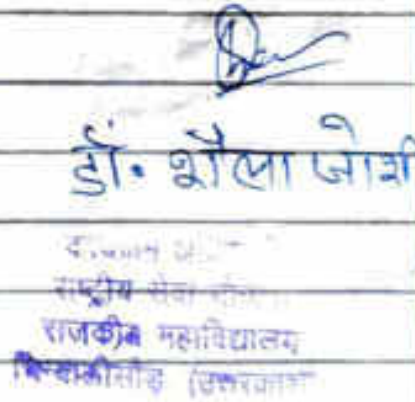 डॉ. शैला जोशी
राष्ट्रीय सेवा
राजकीय महाविद्यालय
चिन्यालीसौड़ (उत्तरकाशी